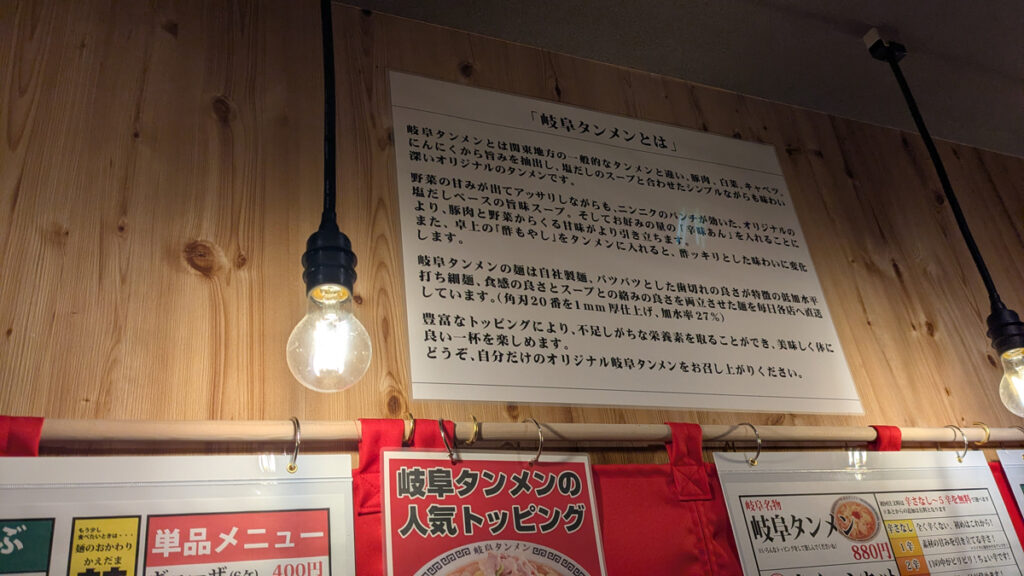 「岐阜タンメンとは」
岐阜タンメンとは関東地方の一般的なタンメンと違い、豚肉、白菜、キャベツ、
にんにくから旨みを抽出し、塩だしのスープと合わせたシンプルながらも味わい
深いオリジナルのタンメンです。
野菜の甘みが出てアッサリしながらも、ニンニクのパンチが効いた、オリジナルの
塩だしベースの旨味スープ。そしてお好みの量の「辛味あん」を入れることに
より、豚肉と野菜からくる甘味がより引き立ちます。
また、卓上の「酢もやし」をタンメンに入れると、酢ッキリとした味わいに変化
します。
岐阜タンメンの麺は自社製麺、パツパツとした歯切れの良さが特徴の低加水平
打ち細麺、食感の良さとスープとの絡みの良さを両立させた麺を毎日各店へ直送
しています。(角刃20番を1mm厚仕上げ、加水率27%)
豊富なトッピングにより、不足しがちな栄養素を取ることができ、美味しく体に
良い一杯を楽しめます。
どうぞ、自分だけのオリジナル岐阜タンメンをお召し上がりください。
ぶ
もう少し
食べたいときは・・・
麺のおかわり
かえだま
単品メニュー
400円
岐阜タンメンの
人気トッピング
岐阜タンメン
岐阜名物
岐阜タンメン
880円
辛さなし〜5辛を無料
辛さなし
1辛
2辛